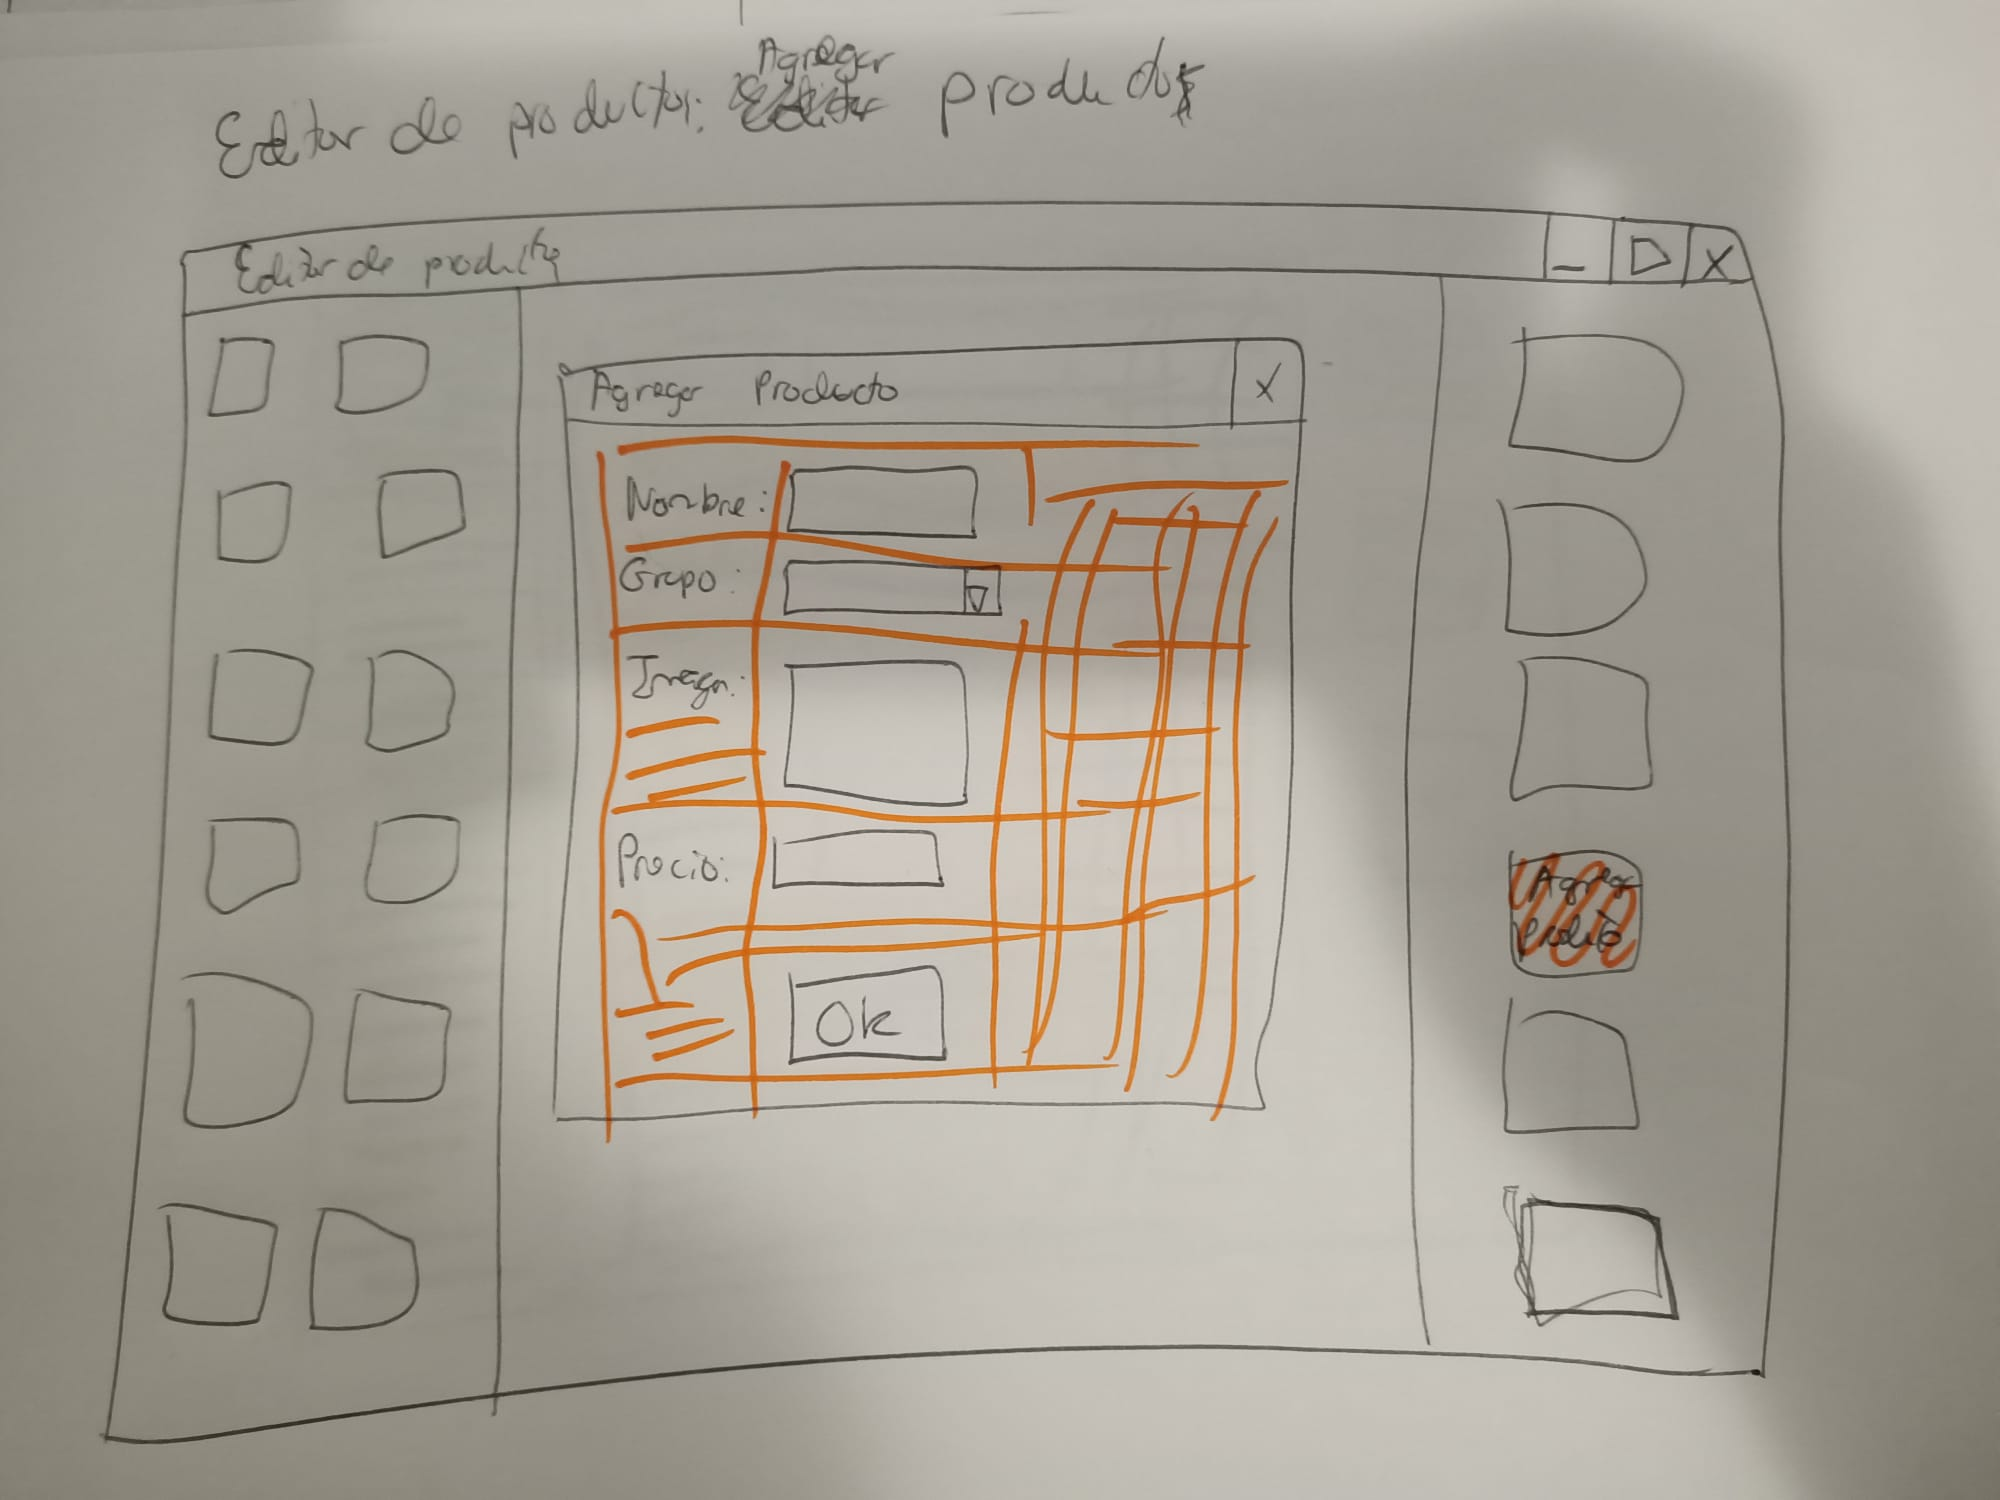 Editor de productos: Agregar producto
Editor de producto
Agregar Producto X
Nombre:
Grupo:
Imagen:
Precio:
Ok
Agregar
Producto